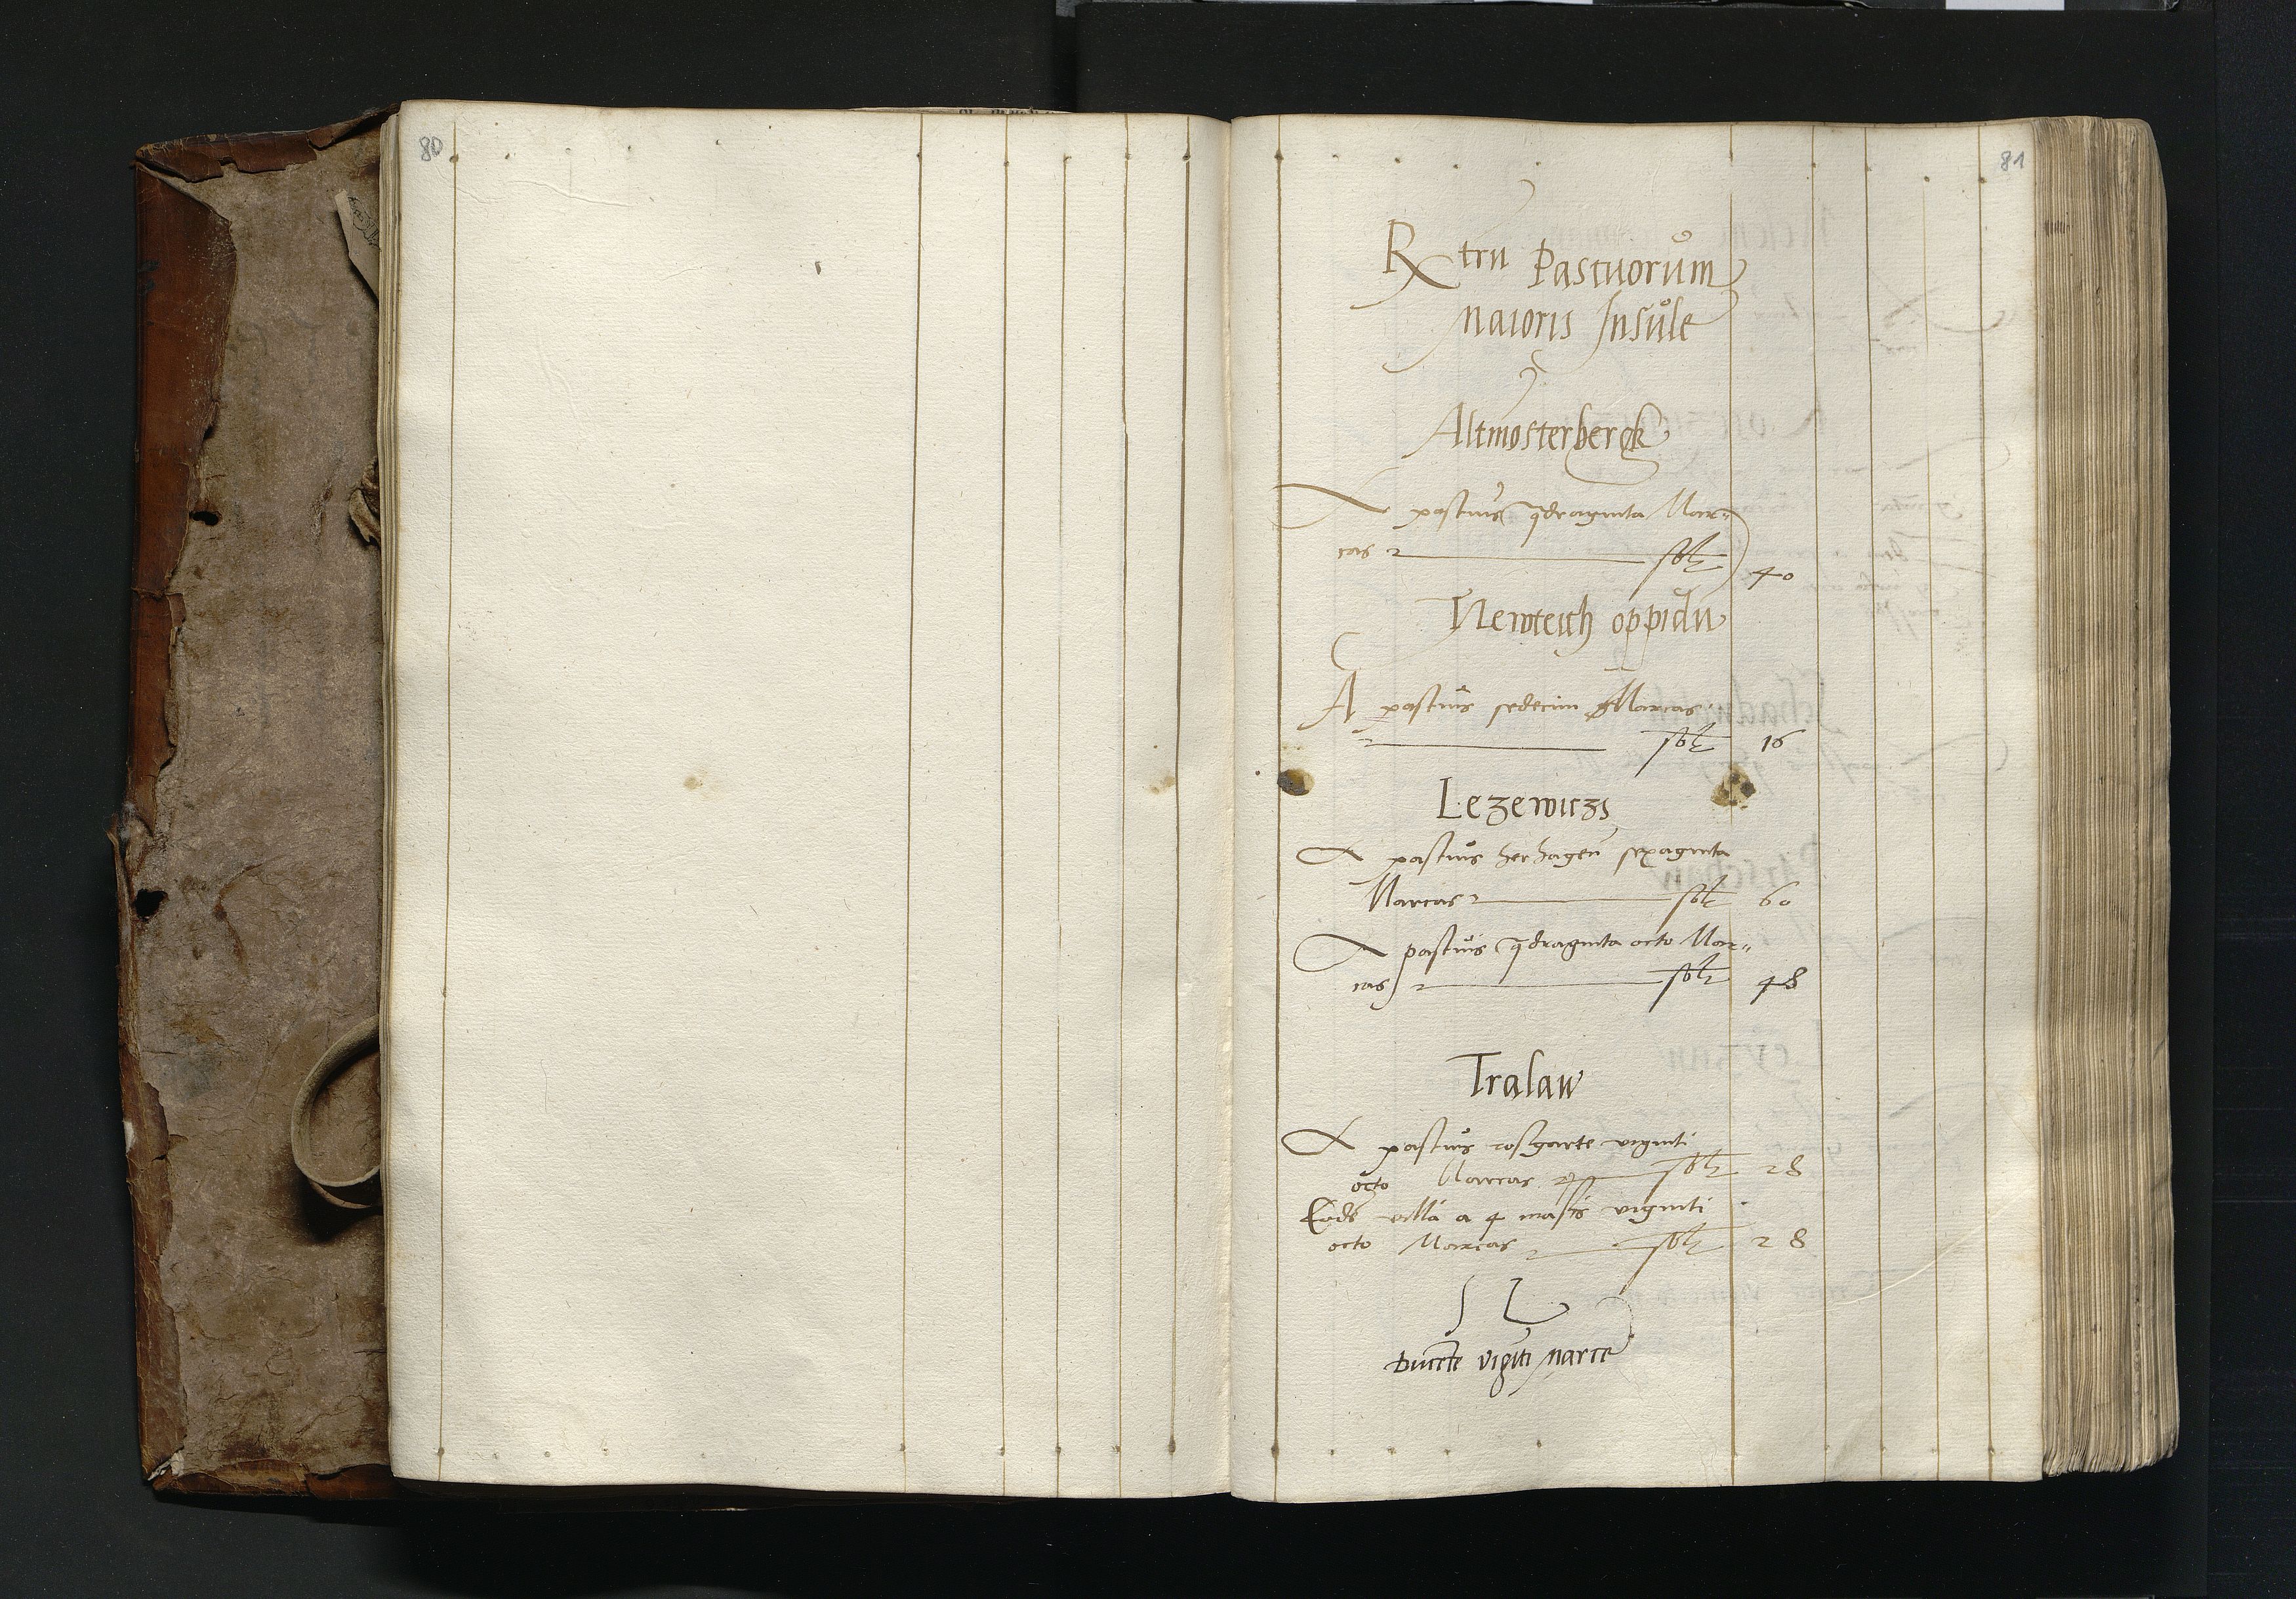 80
81
Rtru Pastuorum
Maioris Insule
Altmosterberck
A pastuis qdraginta Mar=
cas solt 40
Newteich oppidu
A pastuis sedecim Marcas
solt 16
Lezewiczs
A pastuis herhagen sexaginta
Marcas solt 60
A pastuis qdraginta octo Mar=
cas solt 48
Tralaw
A pastuis rosgarte viginti
octo Marcas solt 28
Eade villa a 4 masis viginti
octo Marcas solt 28
S
Ducete vigiti Marce